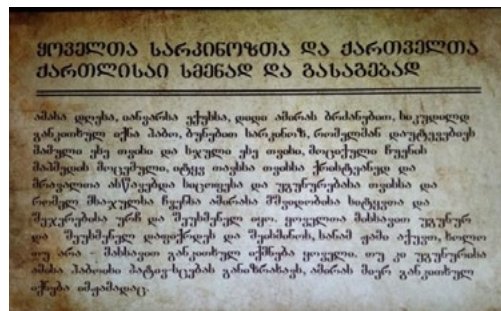 ყოველთა სარკინოზთა და ქართველთა
ქართლისაი სმენად და გასაგებად
ამას დღესა, იანვარსა ექუსსა, დიდი ამირას ბრძანებით, სიკუდილდ
განკითხულ იქნა ჰაბო, ბუნებით სარკინოზ, რომელმან დაუტევებიეს
მამული ესე თვისი და სჯული ესე თვისი, მოციქული ჩუენის
მაჰმედის მოცემული, იტყვ თავსსა თვისსა ქრისტეანედ და
მრავალთა ასწავებდა სიცოფესა და უგუნურებასა თვისსა და
რომელ მსაჯულსა ჩვენსა ამირასა მშვიდობისა სიტყვთა და
შეჯერებისა ურჩ და შეუსმენელ იყო. ყოველთა მისსავით უგუნურ
და შეუსმენელ დაფიქრდეს და შეისმინოს, სანამ ჟამი აქუვთ, ხოლო
თუ არა - მასსავით განკითხულ იქმნება ყოველი. თუ კი უგუნურისა
ამისა ჰაბოისი პატივ-სცებას განიზრახავს, ამირას მიერ განკითხულ
იქნება იმჟამადაც.